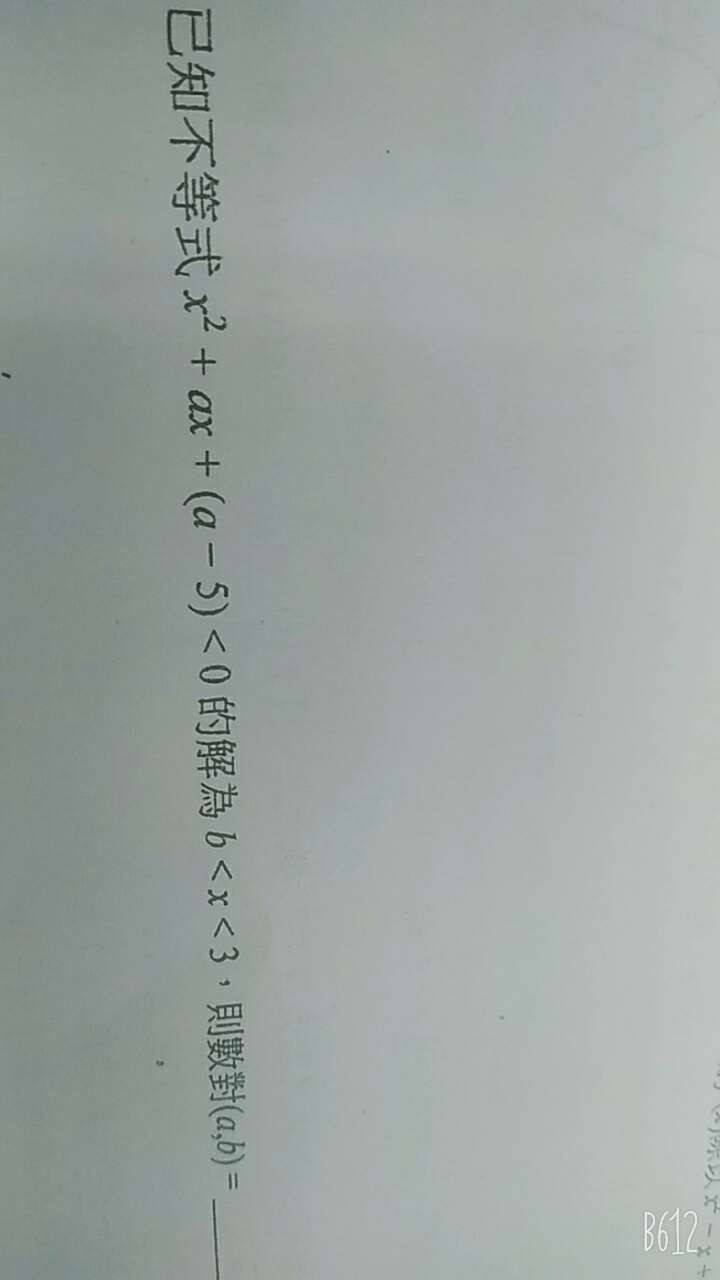 已知不等式 x² + ax + (a − 5) < 0 的解為 b < x < 3，則數對(a,b) = ____
B612